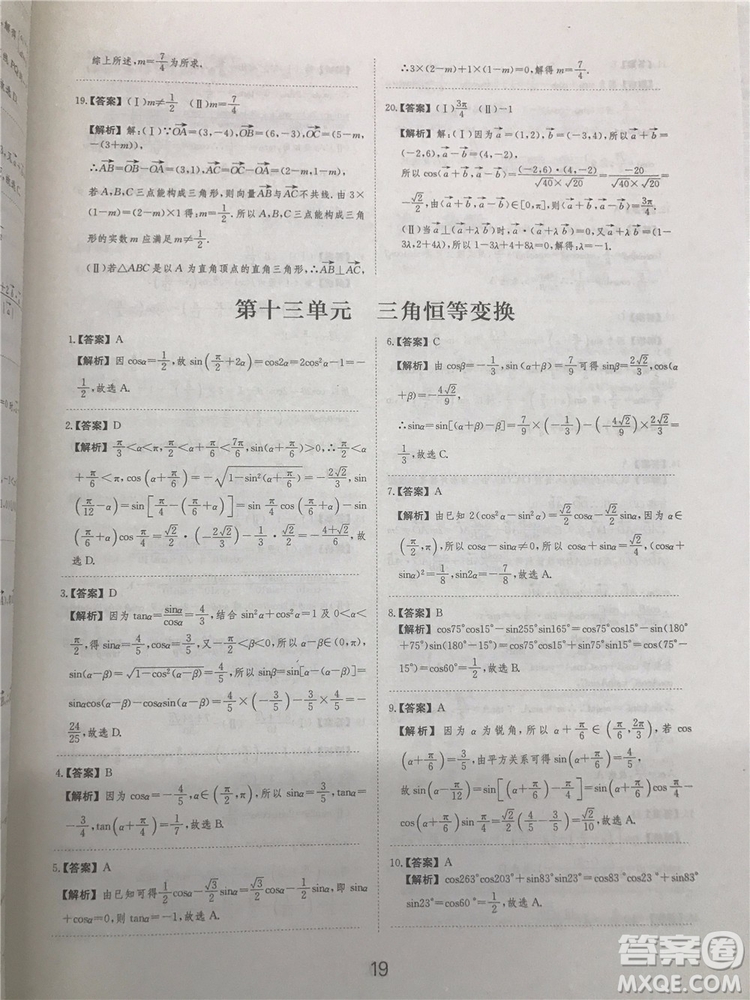 综上所述,m=7/4为所求.
19.【答案】(Ⅰ)m≠1/2 (Ⅱ)m=7/4
【解析】解:(Ⅰ)∵OA→=(3,-4),OB→=(6,-3),OC→=(5-m,
-(3+m)),
∴AB→=OB→-OA→=(3,1),AC→=OC→-OA→=(2-m,1-m),
若A、B、C三点能构成三角形,则向量AB→与AC→不共线.由3×
(1-m)=2-m得m=1/2.所以A、B、C三点能构成三角
形的实数m应满足m≠1/2.
(Ⅱ)若△ABC是以A为直角顶点的直角三角形,∴AB→⊥AC→,
∴3×(2-m)+1×(1-m)=0,解得m=7/4.
20.【答案】(Ⅰ)3π/4 (Ⅱ)-1
第十三单元 三角恒等变换
1.【答案】A
【解析】因cosα=1/2,故sin(π/2+2α)=cos2α=2cos²α-1=
-1/2,故选A.
2.【答案】D
【解析】π/3<α<π,π/2<α+π/6<7π/6,sin(α+π/6)>0,∴π/2<α
+π/6<π,cos(α+π/6)=-√(1-sin²(α+π/6))=-2√2/3,sin
(π/12-α)=sin[π/4-(π/6+α)]=sin π/4 cos(π/6+α)-sin
(π/6+α)cos π/4=√2/2·(-2√2/3)-1/3·√2/2=-(4+√2)/6,故
选D.
3.【答案】D
【解析】因为tanα=sinα/cosα=4/3,结合sin²α+cos²α=1及0<α<
sin(α-β)=√(1-cos²(α-β))=3/5,所以sinβ=sin[α-(α-β)]=
sinαcos(α-β)-cosαsin(α-β)=4/5×4/5-3/5×(-3/5)=
24/25,故选D.
4.【答案】B
【解析】因为cosα=-4/5,α∈(π/2,π),所以sinα=3/5,tanα=
-3/4,tan(α+π/4)=1/7,故选B.
5.【答案】A
【解析】由已知可得1/2cosα-√3/2sinα=√3/2cosα-1/2sinα,即sinα
+cosα=0,则tanα=-1,故选A.
6.【答案】C
【解析】由cosβ=-1/3,sin(α+β)=7/9可得sinβ=2√2/3,cos(α
+β)=-4√2/9,
∴sinα=sin[(α+β)-β]=7/9×(-1/3)-(-4√2/9)×2√2/3=
1/3,故选C.
7.【答案】A
【解析】由已知2(cos²α-sin²α)=√2/2cosα-√2/2sinα,因为α∈
(π/2,π),所以cosα-sinα≠0,所以cosα+sinα=√2/4,所以
8.【答案】B
【解析】cos75°cos15°-sin255°sin165°=cos75°cos15°-sin(180°
+75°)sin(180°-15°)=cos75°cos15°+sin75°sin15°=cos(75°
-15°)=cos60°=1/2,故选B.
9.【答案】A
【解析】因为α为锐角,所以α+π/6∈(π/6,2π/3),若cos
(α+π/6)=4/5,由平方关系可得sin(α+π/6)=3/5,
故sin(α-π/12)=sin[(α+π/6)-π/4]=
10.【答案】A
【解析】cos263°cos203°+sin83°sin23°=cos83°cos23°+sin83°
sin23°=cos60°=1/2,故选A.
19
答案圈
MXQE.COM